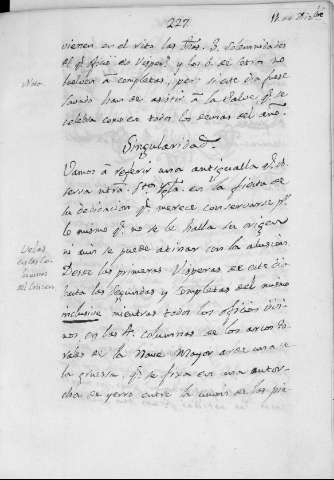 227
vienen en el rito las tres. 3. solemnidades
el qe. oficio de Visperas y los S. de letra no
buelven à completas, pero siete dia pase
lavado han de asistir à la Salve, qe. se
celebra como en todos los demas del año.
Nota
Singularidad
Vamos à referir una antigualla qe. ob-
serva nuestra Sta. Ygla. en la fiesta de
su dedicacion qe. merece conservarse pr.
lo mismo qe. no se le halla su origen
ni aun se puede atinar con la alusion.
Desde las primeras Visperas de este dia
hasta las segundas y Completas del mismo
inclusive mientras todos los oficios divi-
nos, en las 4. columnas de los arcos to-
rales de la Nave Mayor arde una ve-
la gruesa, qe. se fixa en una antor-
cha de yerro entre la union de los pie
De las
del Crucero